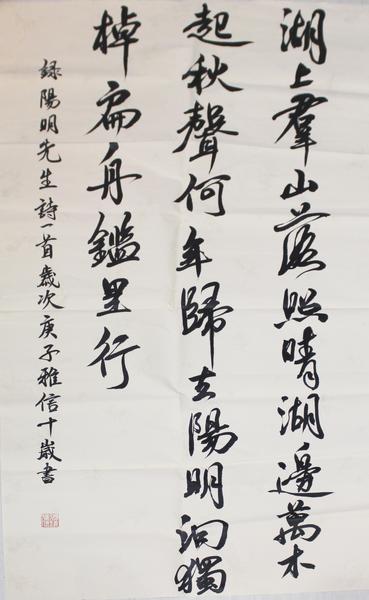 湖上羣山落照晴湖邊萬木
起秋聲何年歸去陽明洞獨
棹扁舟鑑里行
録陽明先生詩一首歲次庚子雅信十歲書